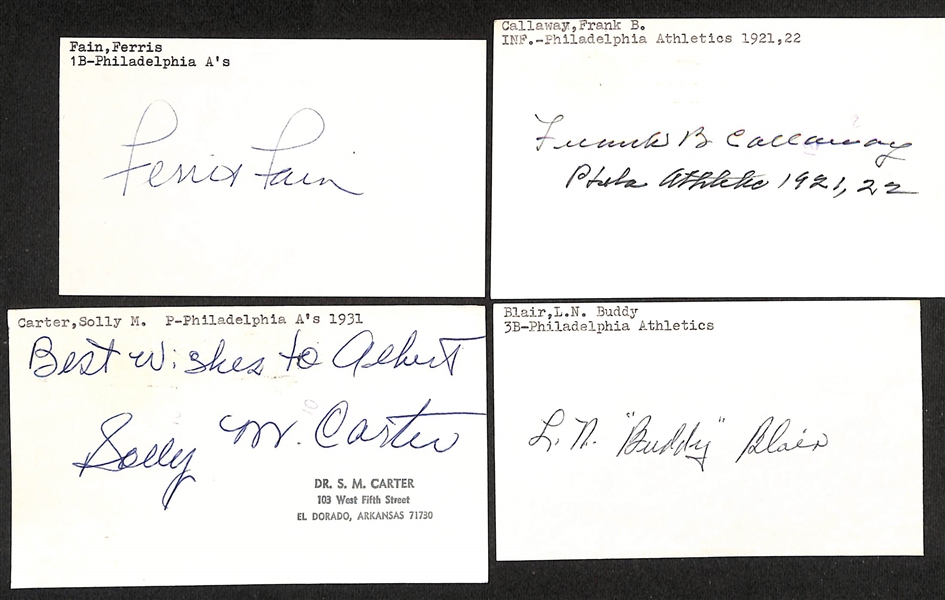 Fain,Ferris
1B-Philadelphia A's
Ferris Fain
Callaway,Frank B.
INF.-Philadelphia Athletics 1921,22
Frank B. Callaway
Phila Athletic 1921, 22
Carter,Solly M.  P-Philadelphia A's 1931
Best Wishes to Albert
Solly M. Carter
DR. S. M. CARTER
103 West Fifth Street
EL DORADO, ARKANSAS 71730
Blair,L.N. Buddy
3B-Philadelphia Athletics
L. N. "Buddy" Blair